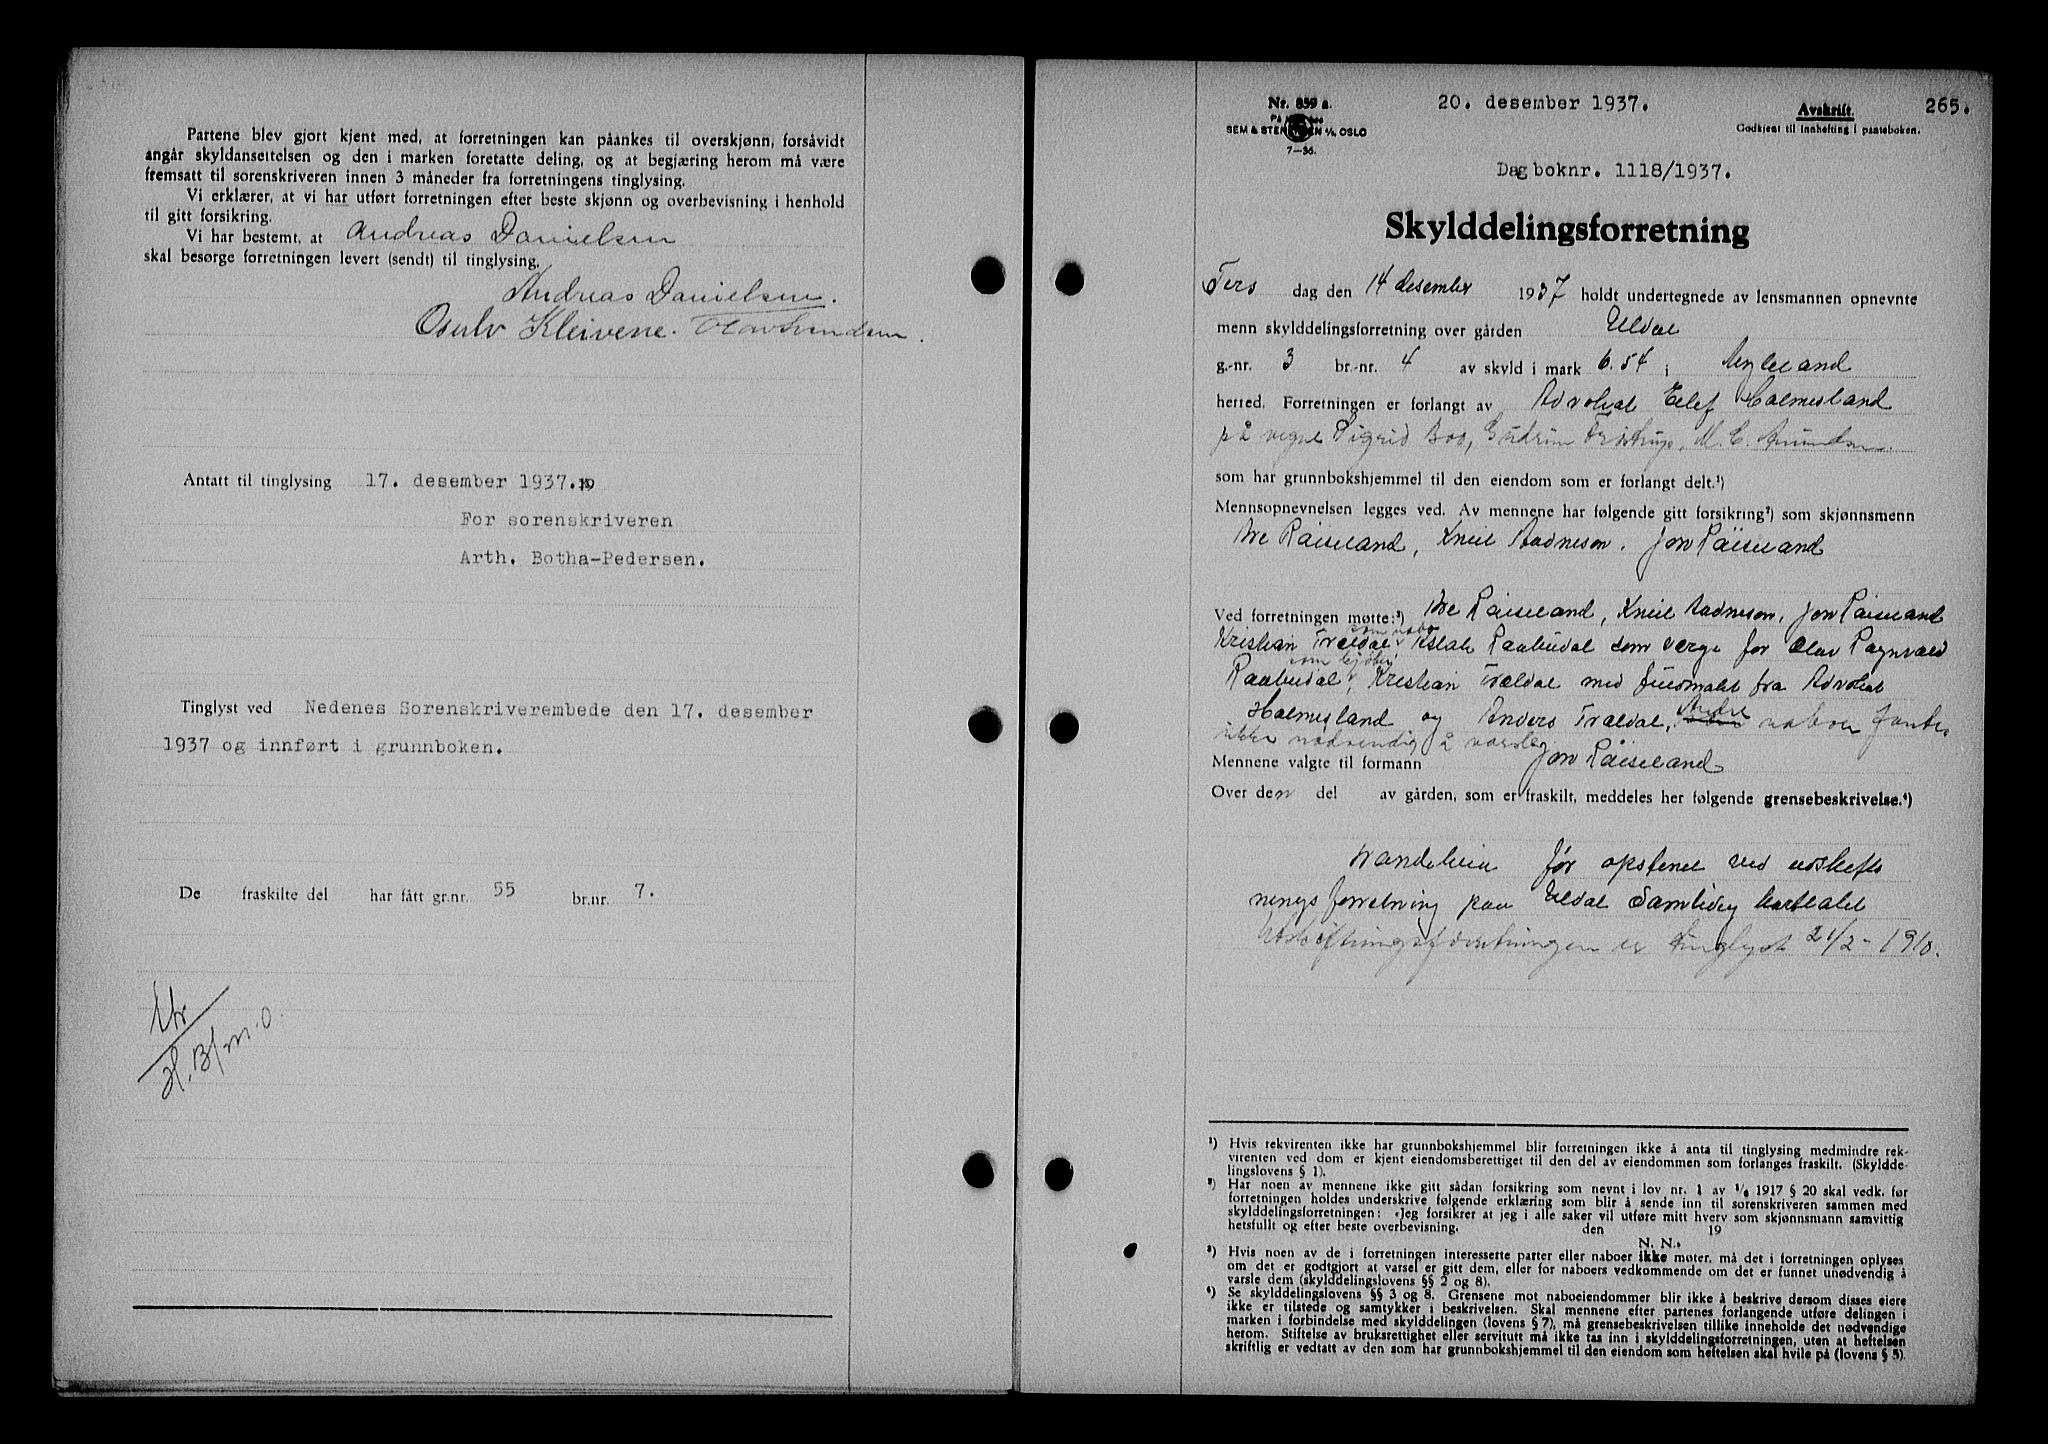 Partene blev gjort kjent med, at forretningen kan påankes til overskjønn, forsåvidt
angår skyldansettelsen og den i marken foretatte deling, og at begjæring herom må være
fremsatt til sorenskriveren innen 3 måneder fra forretningens tinglysing.
Vi erklærer, at vi har utført forretningen efter beste skjønn og overbevisning i henhold
til gitt forsikring.
Vi har bestemt, at Andreas Danielsen
skal besørge forretningen levert (sendt) til tinglysing.
Andreas Danielsen.
Osulv Kleivene. Olav Svendsen.
Antatt til tinglysing 17. desember 1937. 19
For sorenskriveren
Arth. Botha-Pedersen.
Tinglyst ved Nedenes Sorenskriverembede den 17. desember
1937 og innført i grunnboken.
De fraskilte del har fått gr.nr. 55 br.nr. 7.
H.B/m.o.
Nr. 859 a. 20. desember 1937. Avskrift. 265.
SEM & STENERSEN A/S, OSLO Godkjent til innhefting i panteboken.
7-36.
Dagboknr. 1118/1937.
Skylddelingsforretning
Tirs dag den 14 desember 1937 holdt undertegnede av lensmannen opnevnte
menn skylddelingsforretning over gården Uldal
g.-nr. 3 br.-nr. 4 av skyld i mark 6.54 i Mykland
herred. Forretningen er forlangt av Advokat Eilef Holmesland
på vegne Sigrid Boo, Gudrun Tristrup, M. C. Amundsen.
som har grunnbokshjemmel til den eiendom som er forlangt delt.¹)
Mennsopnevnelsen legges ved. Av mennene har følgende gitt forsikring²) som skjønnsmenn
Are Råiseland, Knut Aadneson, Jon Råiseland
Ved forretningen møtte:³) Are Råiseland, Knut Aadneson, Jon Råiseland
som nabo
Kristian Trældal, Aslak Raabudal som verge for Olav Ragnvald
som kjøber
Raabudal, Kristian Trældal med fullmakt fra Advokat
Holmesland og Anders Trældal, Andre naboer fantes
ikke nødvendig å varsle
Mennene valgte til formann Jon Råiseland
Over den del av gården, som er fraskilt, meddeles her følgende grensebeskrivelse.⁴)
før opstenet ved udskift
nings forretning paa Uldal Samtidig kartlakt
Utskiftningsforretningen er tinglyst 21/2-1910.
¹) Hvis rekvirenten ikke har grunnbokshjemmel blir forretningen ikke å anta til tinglysing medmindre rek-
virenten ved dom er kjent eiendomsberettiget til den del av eiendommen som forlanges fraskilt. (Skyldde-
lingslovens § 1).
²) Har noen av mennene ikke gitt sådan forsikring som nevnt i lov nr. 1 av ¹/₆ 1917 § 20 skal vedk. før
forretningen holdes underskrive følgende erklæring som blir å sende inn til sorenskriveren sammen med
skylddelingsforretningen: «Jeg forsikrer at jeg i alle saker vil utføre mitt hverv som skjønnsmann samvittig
hetsfullt og efter beste overbevisning. den 19
N. N.»
³) Hvis noen av de i forretningen interesserte parter eller naboer ikke møter, må det i forretningen oplyses
om det er godtgjort at varsel er gitt dem, eller for naboers vedkommende om det er funnet unødvendig å
varsle dem (skylddelingslovens §§ 2 og 8).
⁴) Se skylddelingslovens §§ 3 og 8. Grensene mot naboeiendommer blir ikke å beskrive dersom disses eiere
ikke er tilstede og samtykker i beskrivelsen. Skal mennene efter partenes forlangende utføre delingen i
marken i forbindelse med skylddelingen (lovens § 7), må grensebeskrivelsen tillike inneholde det nødvendige
herom. Stiftelse av bruksrettighet eller servitutt må ikke tas inn i skylddelingsforretningen, uten at heftelsen
skriftlig er vedtatt av den som har grunnbokshjemmel til den eiendom som heftelsen skal hvile på (lovens § 5).